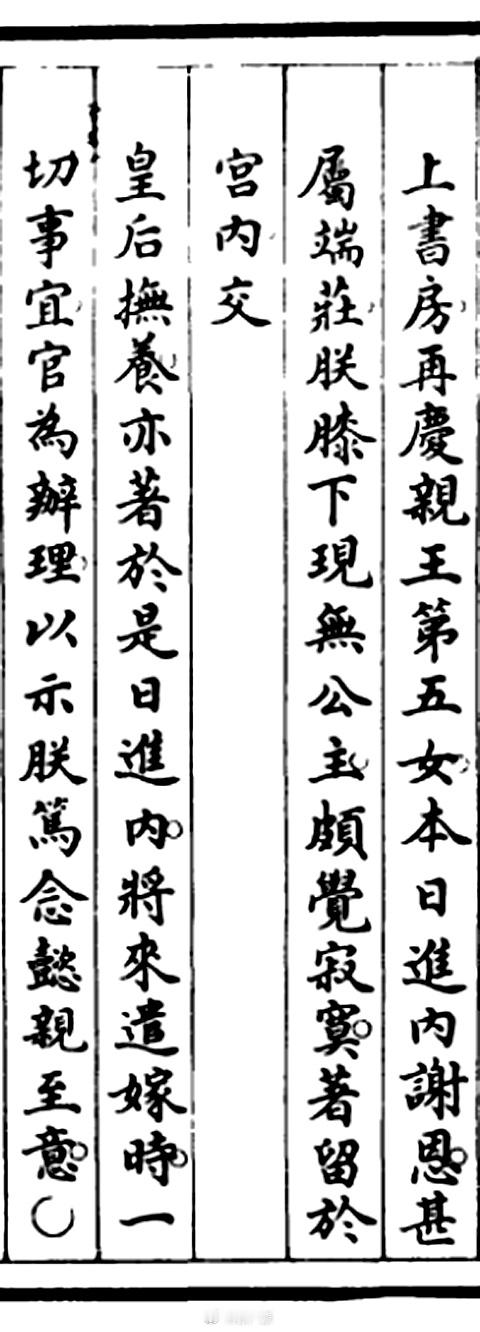 上書房再慶親王第五女本日進內謝恩甚
屬端莊朕膝下現無公主頗覺寂寞著留於
宮內交
皇后撫養亦著於是日進內將來遣嫁時一
切事宜官為辦理以示朕篤念懿親至意